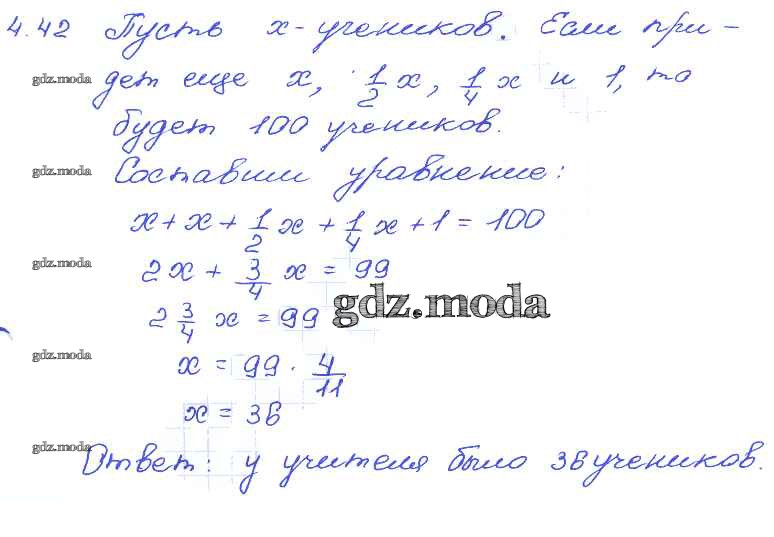 4.42 Пусть x-учеников. Если при-
gdz.moda дет еще x, 1/2 x, 1/4 x и 1, то
будет 100 учеников.
gdz.moda Составим уравнение:
x + x + 1/2 x + 1/4 x + 1 = 100
gdz.moda 2x + 3/4 x = 99
2 3/4 x = 99 gdz.moda
gdz.moda x = 99 · 4/11
x = 36
gdz.moda Ответ: у учителя было 36 учеников.